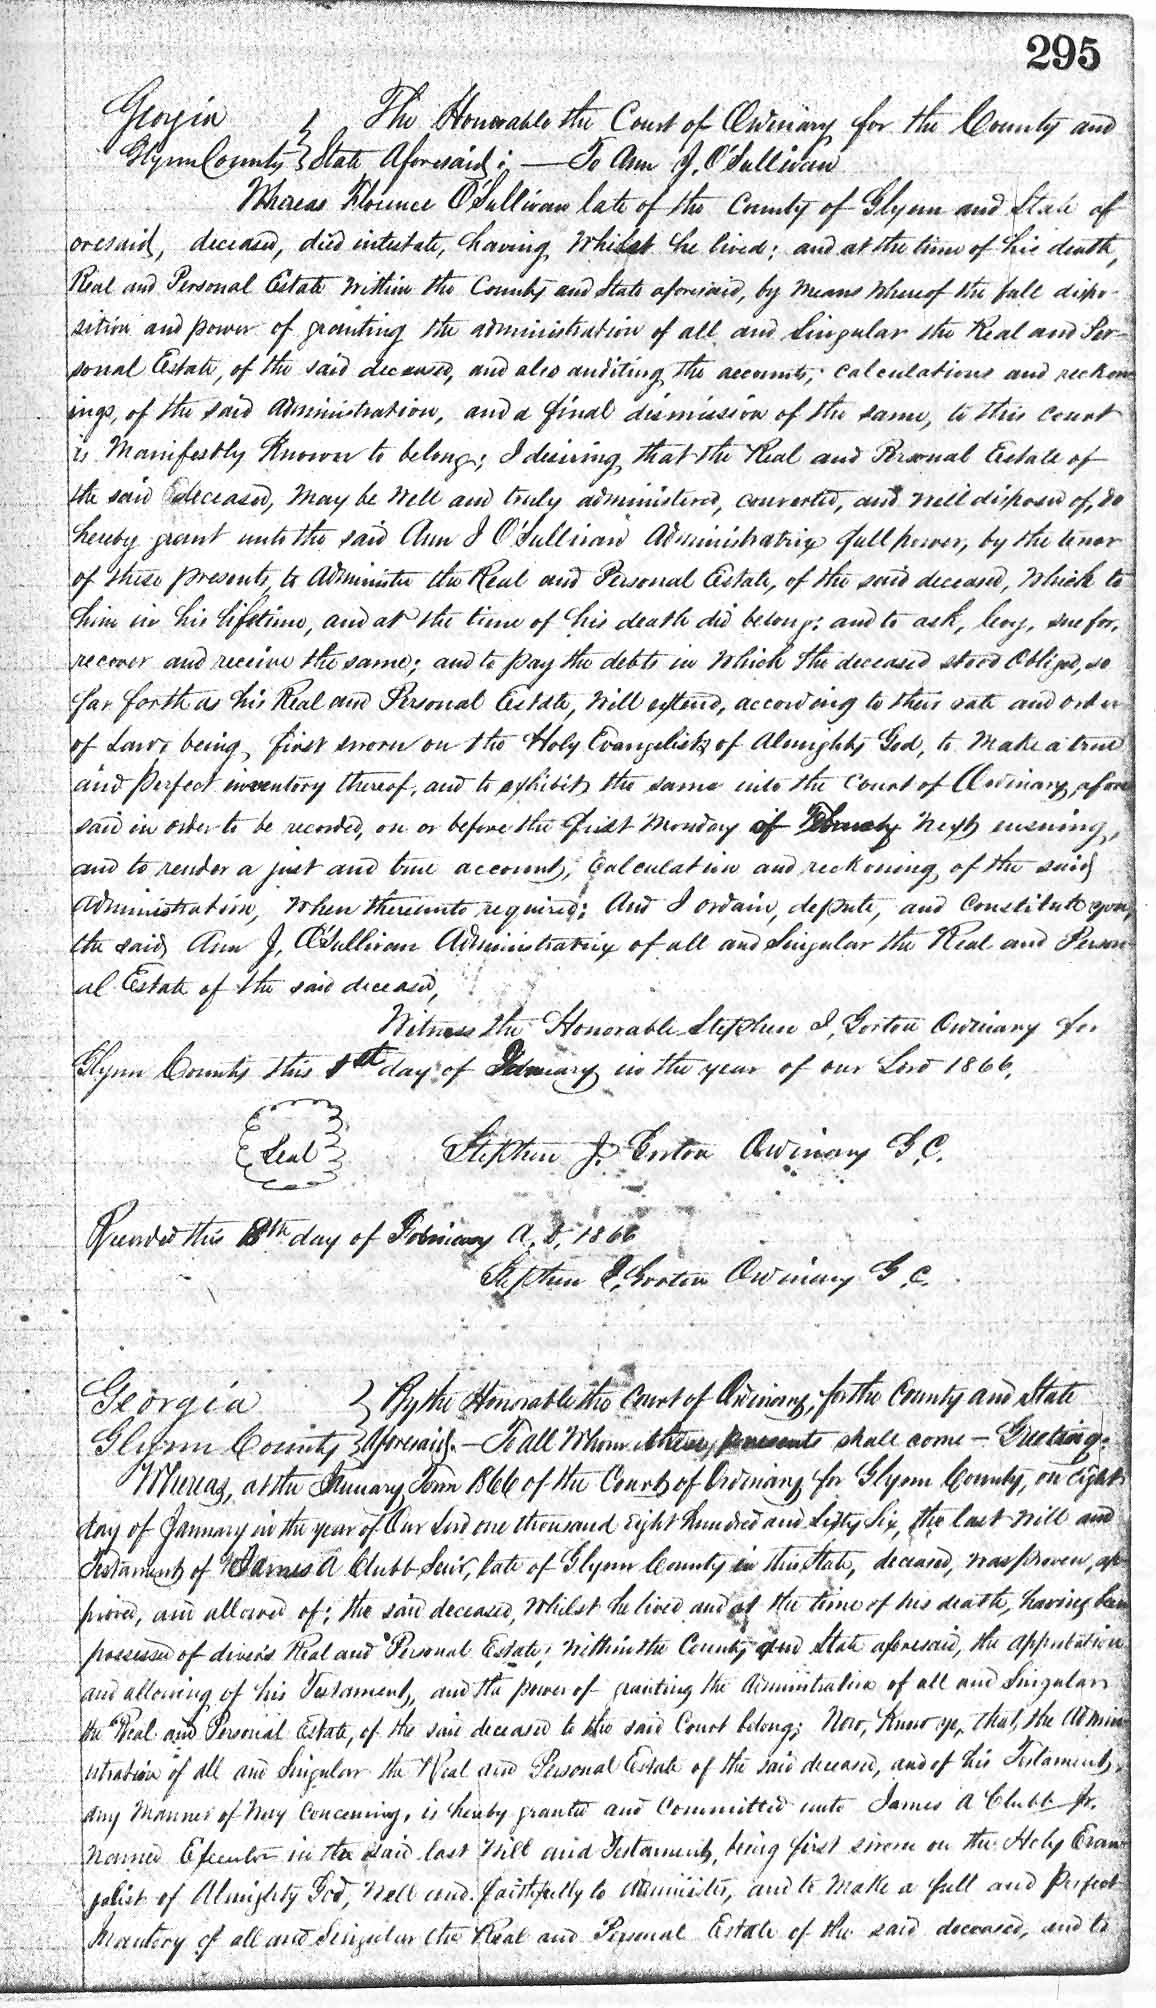 295
Georgia } The Honorable the Court of Ordinary for the County and
Glynn County } State Aforesaid; — To Ann J. O'Sullivan
Whereas Florence O'Sullivan late of the County of Glynn and State af
oresaid, deceased, died intestate, having whilst he lived; and at the time of his death,
Real and Personal Estate within the County and State aforesaid, by means whereof the full dispo-
sition and power of granting the administration of all and Singular the Real and Per-
sonal Estate, of the said deceased, and also auditing the accounts, calculations and reckon
ings, of the said administration, and a final dismission of the same, to this court
is Manifestly Known to belong; I desiring, that the Real and Personal Estate of
the said deceased, may be well and truly administered, converted, and well disposed of, do
hereby grant unto the said Ann J O'Sullivan Administratrix full power, by the tenor
of these presents, to Administer the Real and Personal Estate, of the said deceased, which to
him in his lifetime, and at the time of his death did belong: and to ask, levy, sue for,
recover and receive the same; and to pay the debts in which the deceased stood obliged, so
far forth as his Real and Personal Estate, will extend, according to their rate and order
of Law, being, first sworn on the Holy Evangelists of Almighty God, to make a true
and perfect inventory thereof, and to exhibit the same into the Court of Ordinary, afore
said in order to be recorded, on or before the first Monday of next ensuing,
and to render a just and true account, Calculation and reckoning, of the said
Administration, when thereunto required; And I ordain, depute, and Constitute you,
the said Ann J, O'Sullivan Administratrix of all and Singular the Real and Person
al Estate of the said deceased,
Witness the Honorable Stephen J, Gorton Ordinary for
Glynn County this 8th day of January in the year of our Lord 1866.
Seal Stephen J. Gorton Ordinary G C.
Recorded this 8th day of February A, D, 1866
Stephen J, Gorton Ordinary G C.
Georgia } By the Honorable the Court of Ordinary, for the County and State
Glynn County } Aforesaid. — To all Whom these, presents shall come — Greeting.
Whereas, at the January Term 1866 of the Court of Ordinary for Glynn County, on eight
day of January in the year of Our Lord one thousand eight hundred and Sixty Six, the last will and
Testament of James A Clubb Senr, late of Glynn County in this State, deceased, was proven, ap
proved, and allowed of; the said deceased, whilst he lived and at the time of his death, having been
possessed of divers Real and Personal Estate; within the County and State aforesaid, the approbation
and allowing of his Testament, and the power of granting the Administration of all and Singular
the Real and Personal Estate, of the said deceased to the said Court belong; Now, Know ye, that, the Admin
istration of all and Singular the Real and Personal Estate of the said deceased, and of his Testament,
any Manner of way Concerning, is hereby granted and Committed unto James A Clubb Jr.
Named Executor in the said last will and Testament, being first sworn on the Holy Evan
gelist of Almighty God, well and faithfully to administer, and to make a full and Perfect
Inventory of all and Singular the Real and Personal Estate of the said deceased, and to